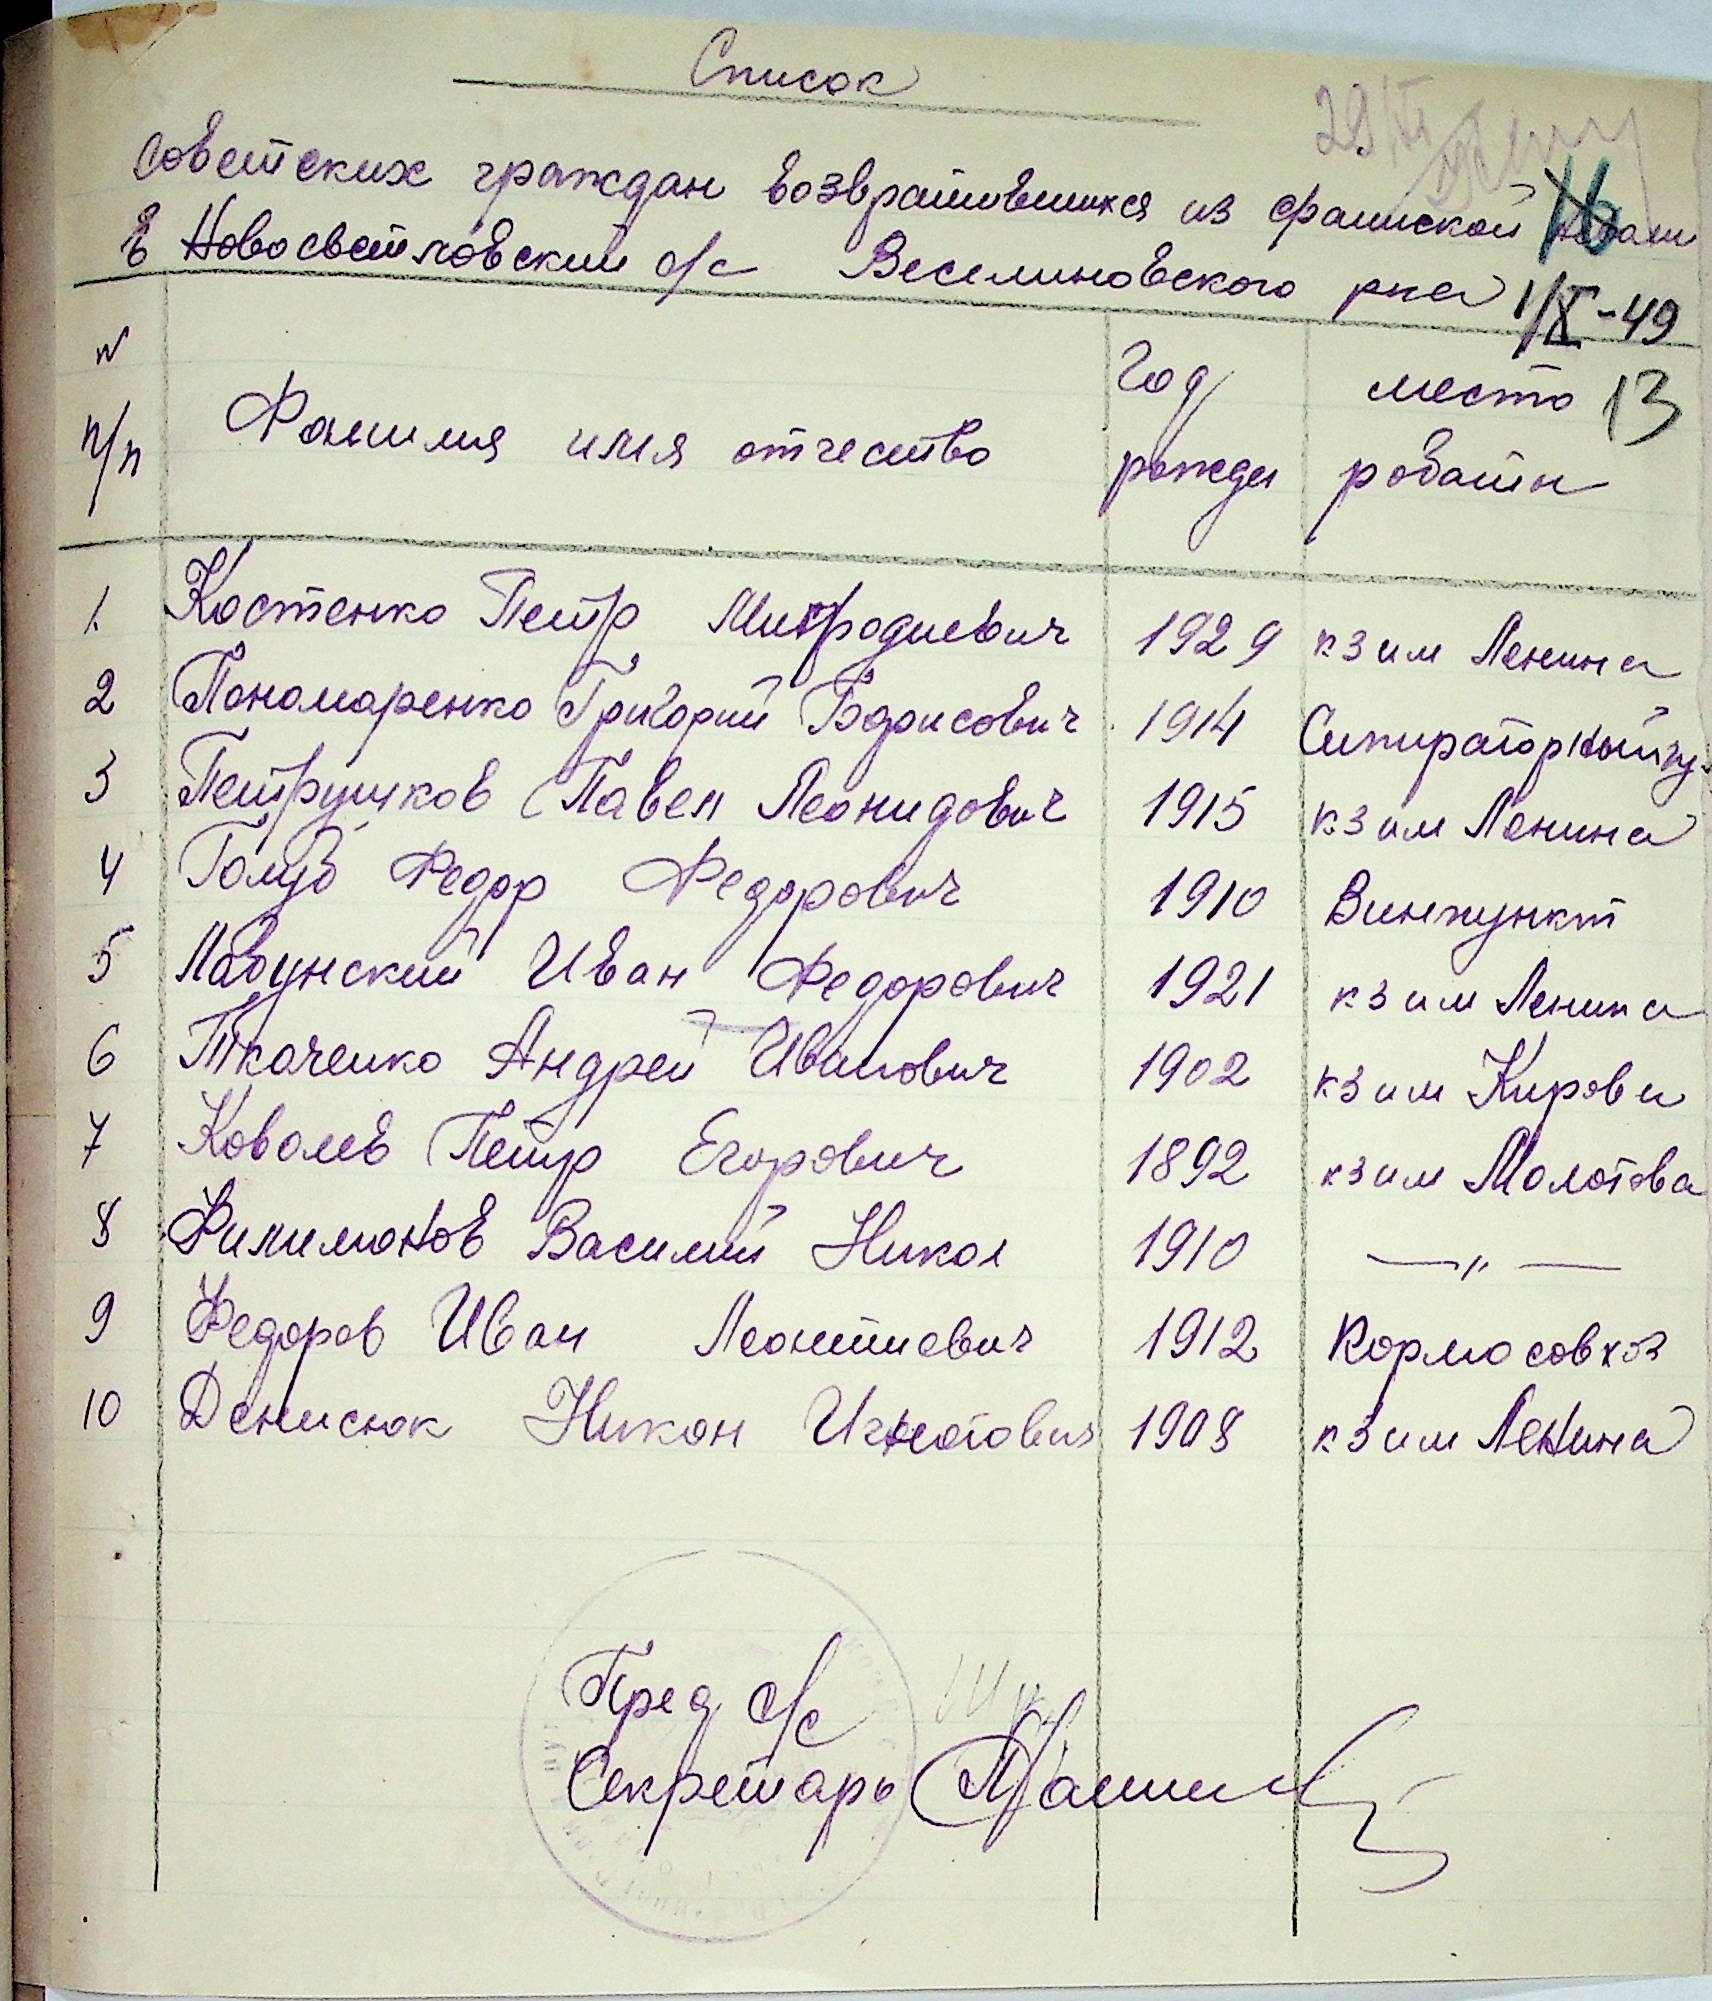 Список
Советских граждан возвратившихся из фашиской
в Новосветловский с/с Веселиновского рна 1/X-49
№ п/п Фамилия имя отчество Год рожден место работы 13
1. Костенко Петр Митродиевич 1929 кз им Ленина
2 Пономаренко Григорий Борисович 1914 Сипираторный пу.
3 Петрушков Павел Леонидович 1915 кз им Ленина
4 Голуб Федор Федорович 1910 Винпункт
5 Лабунский Иван Федорович 1921 кз им Ленина
6 Ткаченко Андрей Иванович 1902 кз им Кирова
7 Ковалев Петр Егорович 1892 кз им Молотова
8 Филимонов Василий Никол 1910 —〃—
9 Федоров Иван Леонтиевич 1912 Кормосовхоз
10 Денисюк Никон Игнатович 1908 кз им Ленина
Пред с/с
Секретарь